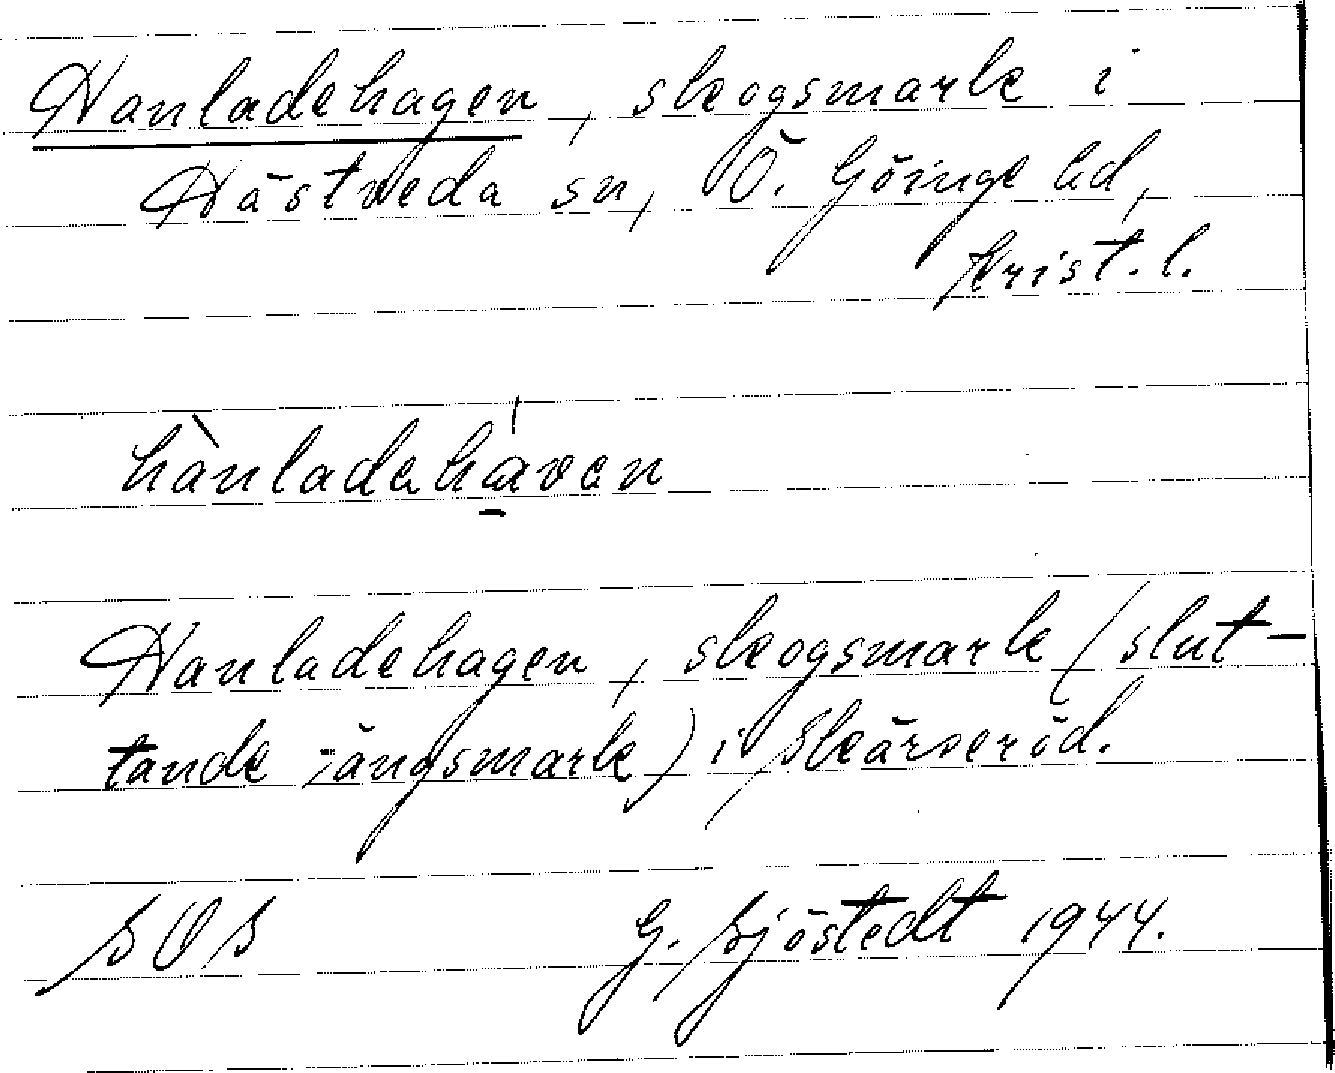 Hanladehagen, skogsmark i
Hästveda sn, Ö. Göinge hd,
Krist. l.
hànladehávan
Hanladehagen, skogsmark (slut-
tande ängsmark) i Skärseröd.
SOS G. Sjöstedt 1944.